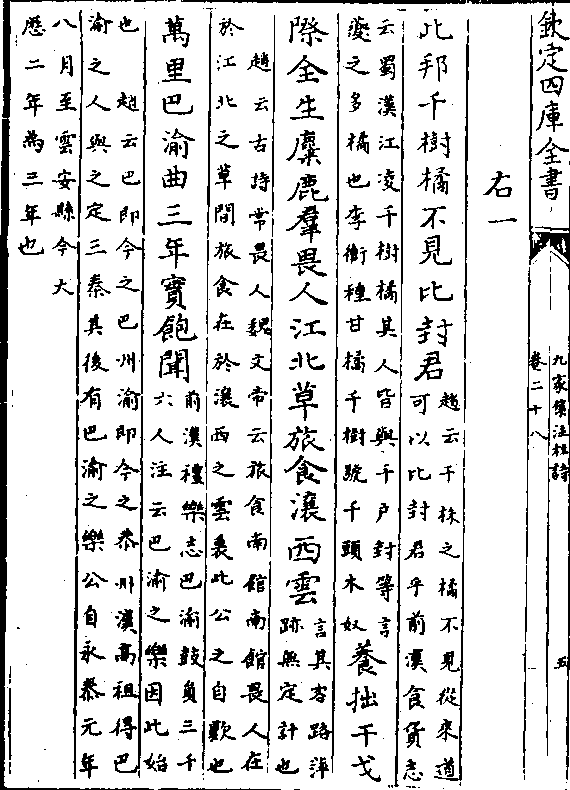 欽定四庫全書
九家集注杜詩
卷二十八
五
右一
此邦千樹橘不見比封君
趙云千株之橘不見從來道
可以比封君乎前漢食貨志
云蜀漢江凌千樹橘其人皆與千戶封等言
夔之多橘也李衡種甘橘千樹號千頭木奴
養拙干戈
際全生麋鹿羣畏人江北草旅食瀼西雲
言其客路萍
跡無定計也
趙云古詩常畏人魏文帝云旅食南館南館畏人在
於江北之草間旅食在於瀼西之雲裏此公之自歎也
萬里巴渝曲三年實飽聞
前漢禮樂志巴渝鼓員三千
六人注云巴渝之樂因此始
也 趙云巴即今之巴州渝即今之恭州漢高祖得巴
渝之人與之定三秦其後有巴渝之樂公自永泰元年
八月至雲安縣今大
歷二年為三年也